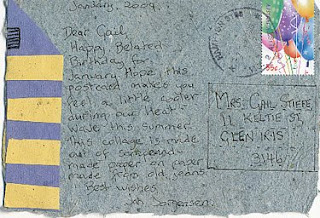 January, 2009.
Dear Gail,
Happy Belated
Birthday for
January. Hope this
postcard makes you
feel a little cooler
during our Heat
Wave this summer.
This collage is made
out of scrap and
made paper on paper
made from old jeans
Best wishes,
Jan
MRS. GAIL STIFFE,
KELTIE ST,
GLEN IRIS
3146
55c